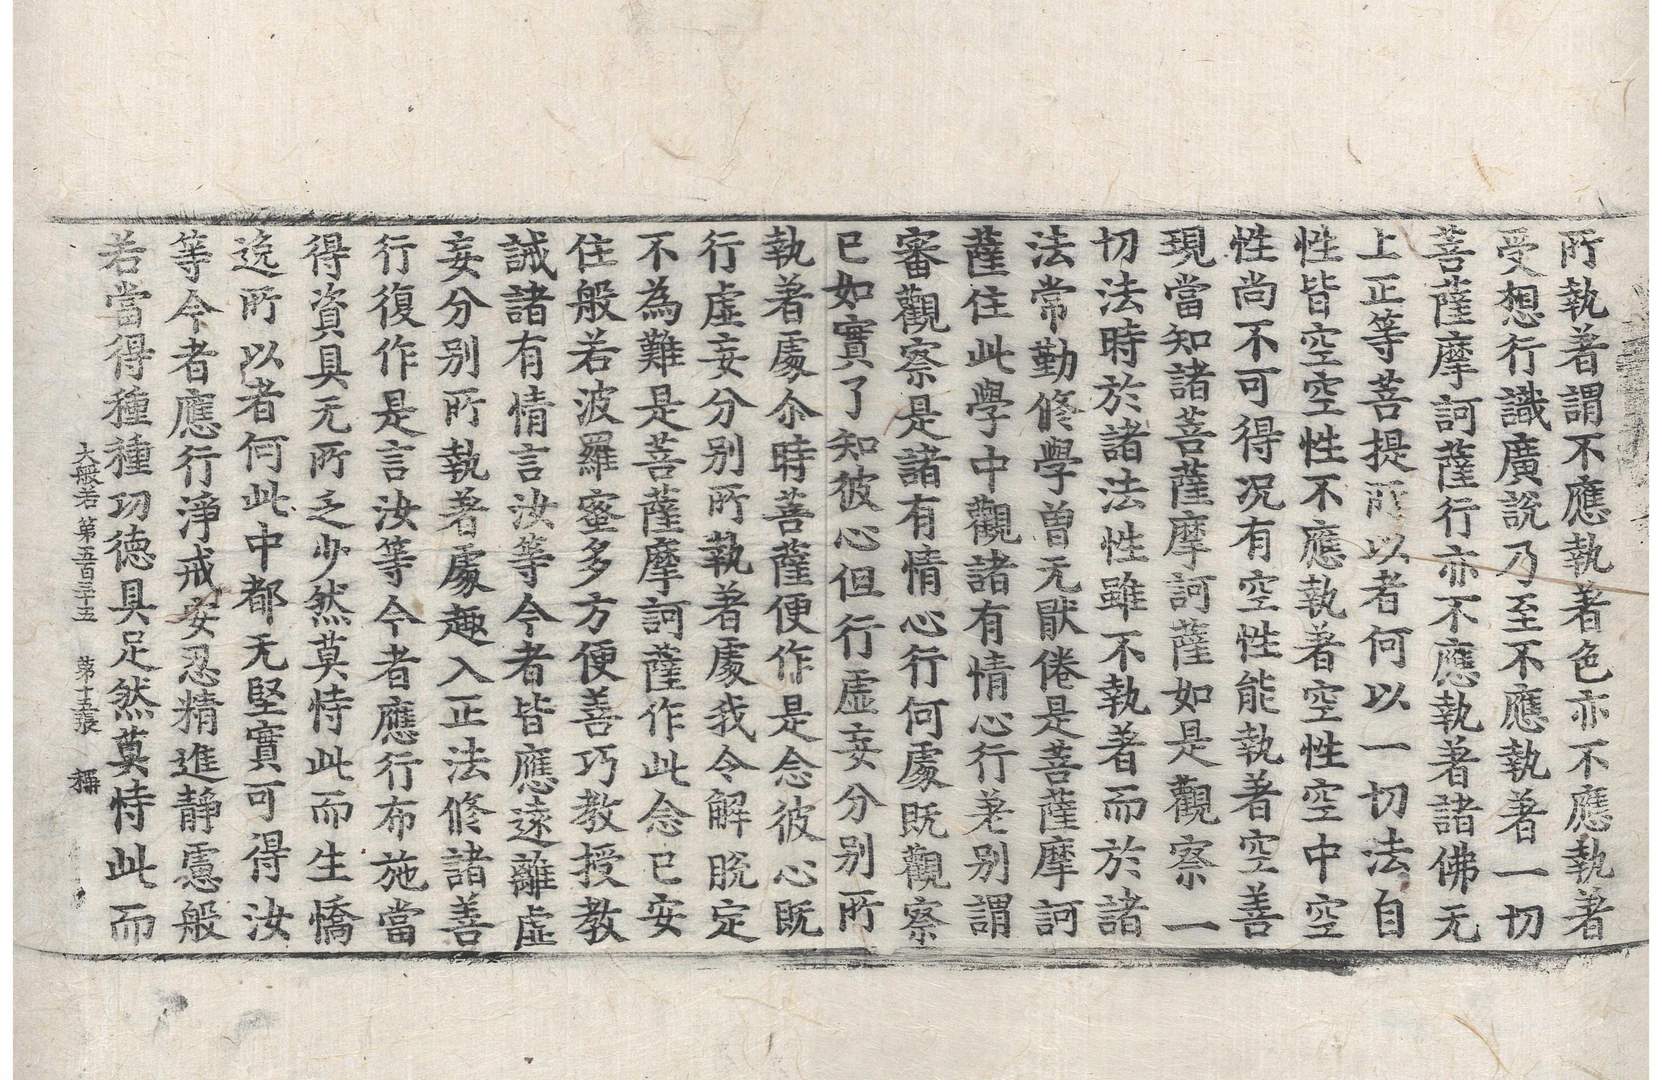 所執著謂不應執著色亦不應執著
受想行識廣說乃至不應執著一切
菩薩摩訶薩行亦不應執著諸佛无
上正等菩提所以者何以一切法自
性皆空空性不應執著空性空中空
性尚不可得况有空性能執著空善
現當知諸菩薩摩訶薩如是觀察一
切法時於諸法性雖不執著而於諸
法常勤修學曾无猒倦是菩薩摩訶
薩住此學中觀諸有情心行差別謂
審觀察是諸有情心行何處既觀察
已如實了知彼心但行虛妄分別所
執著處尒時菩薩便作是念彼心既
行虛妄分別所執著處我令解脫定
不為難是菩薩摩訶薩作此念已安
住般若波羅蜜多方便善巧教授教
誡諸有情言汝等今者皆應遠離虛
妄分別所執著處趣入正法修諸善
行復作是言汝等今者應行布施當
得資具无所乏少然莫恃此而生憍
逸所以者何此中都无堅實可得汝
等今者應行淨戒安忍精進靜慮般
若當得種種功德具足然莫恃此而
大般若第五百三十五 第十五張 稱